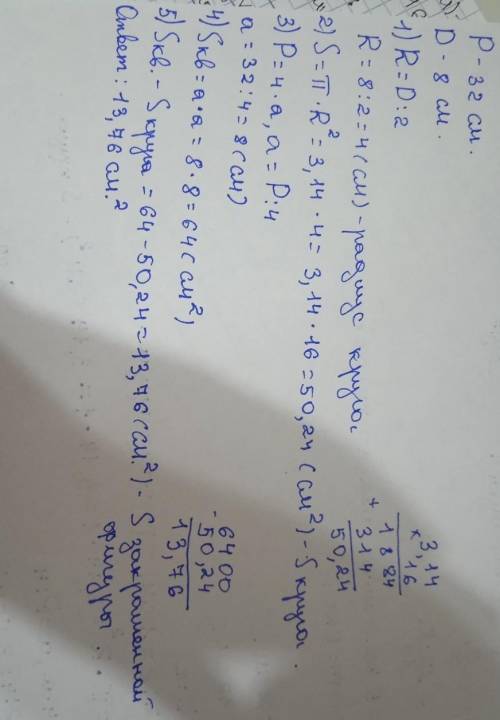 P - 32 см.
D - 8 см.
1) R = D : 2
R = 8 : 2 = 4 (см) - радиус круга.
2) S = π · R² = 3,14 · 4 = 3,14 · 16 = 50,24 (см²) - S круга.
3) P = 4 · a, a = P : 4
a = 32 : 4 = 8 (см)
4) Sкв = a · a = 8 · 8 = 64 (см²)
5) Sкв. - S круга = 64 - 50,24 = 13,76 (см.²) - S закрашенной
фигуры.
Ответ: 13,76 см.²
× 3,14
16
+ 1884
314
50,24
- 6400
50,24
13,76